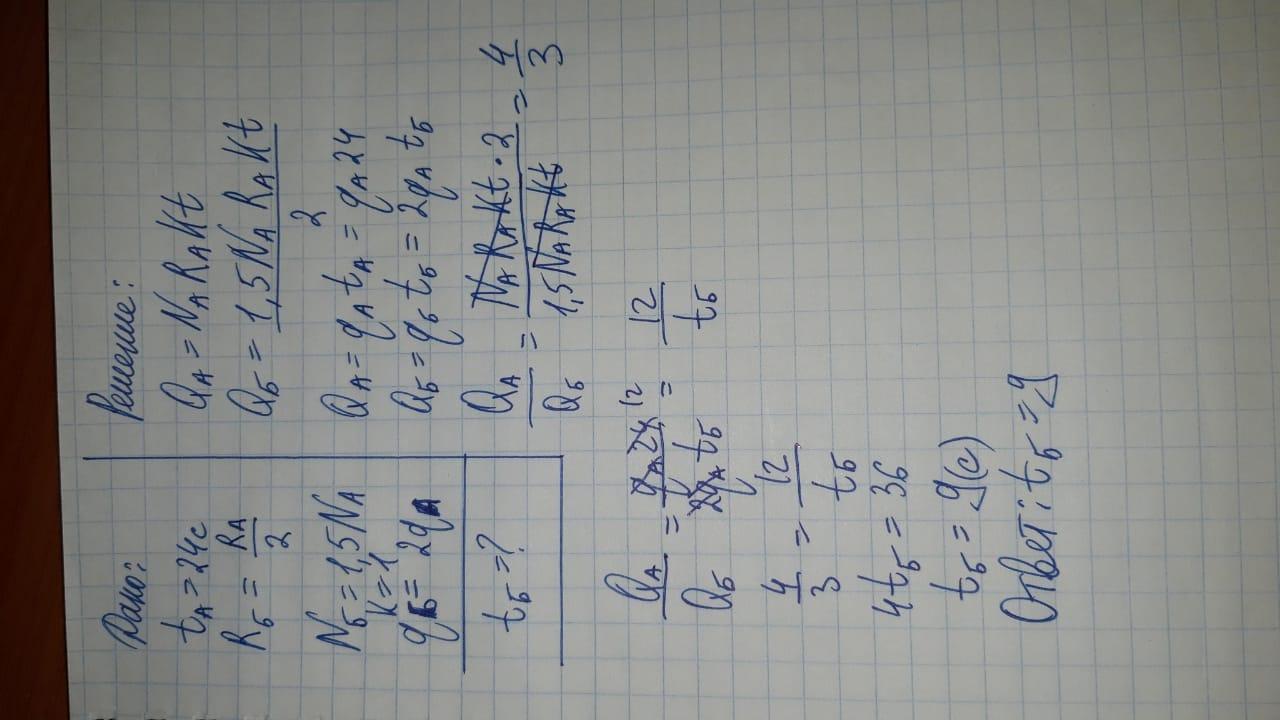 Дано:
t_A = 24с
R_Б = R_A / 2
N_Б = 1,5N_A
K = 1
q_Б = 2q_A
t_Б = ?
Решение:
Q_A = N_A R_A K t
Q_Б = 1,5 N_A R_A K t / 2
Q_A = q_A t_A = q_A 24
Q_Б = q_Б t_Б = 2q_A t_Б
Q_A / Q_Б = N_A R_A K t · 2 / 1,5 N_A R_A K t = 4 / 3
Q_A / Q_Б = q_A 24 12 / 2q_A t_Б = 12 / t_Б
4 / 3 = 12 / t_Б
4t_Б = 36
t_Б = 9(с)
Ответ: t_Б = 9